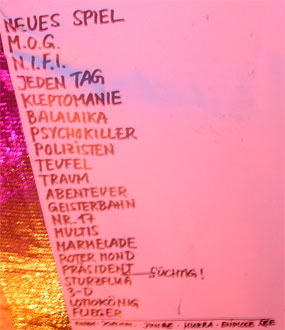 NEUES SPIEL
M.O.G.
N.I.F.I.
JEDEN TAG
KLEPTOMANIE
BALALAIKA
PSYCHOKILLER
POLIZISTEN
TEUFEL
TRAUM
ABENTEUER
GEISTERBAHN
NR. 17
MULTIS
MARMELADE
ROTER MOND
PRÄSIDENT — SÜCHTIG!
STURZFLUG
3-D
LOTTOKÖNIG
FLIEGER